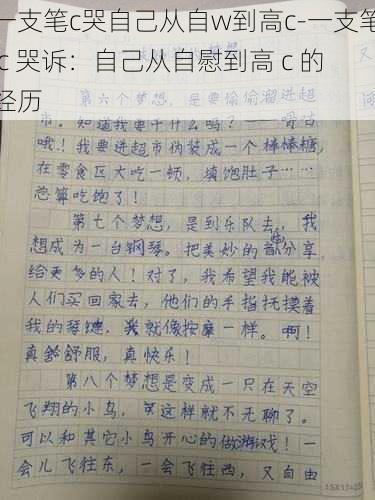 一支笔c哭自己从自w到高c-一支笔
c 哭诉：自己从自慰到高 c 的
经历
第六个梦想，是要偷偷溜进超
市。知道我要干什么吗？——嘻咕
哦！我要进超市伪装成一个棒棒糖，
在零食区大吃一顿，填饱肚子……
总算吃饱了！
第七个梦想，是到乐队去，我
想成为一台钢琴。把美妙的音分享
给更多的人！对了，我希望我能被
人们买回家去，他们的手指抚摸着
我的琴键，我就像按摩一样。啊！
真舒服，真快乐！
第八个梦想是变成一只在天空
飞翔的小鸟，这样就不无聊了。
可以和其它小鸟开心的做游戏！一
会儿飞往东，一会飞往西，又自由